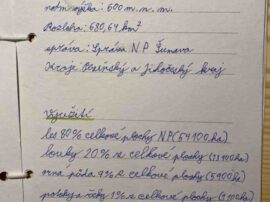 nadm. výška: 600 m. n. m.
Rozloha: 680,64 km²
správa: Správa NP Šumava
Kraje Plzeňský a Jihočeský kraj
Využití
les 80% celkové plochy NP (54 400 ha)
louky 20% z celkové plochy
orná půda 9% z celkové plochy (5900 ha)
potoky a řeky 1% z celkové plochy